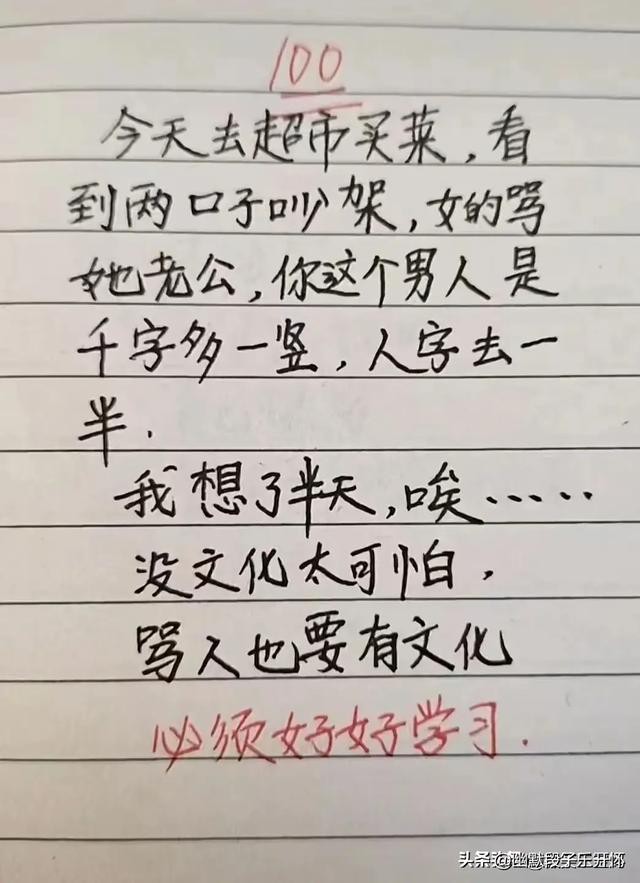 100
今天去超市买菜，看
到两口子吵架，女的骂
她老公，你这个男人是
千字多一竖，人字去一
半.
我想了半天，唉.....
没文化太可怕，
骂人也要有文化
必须好好学习.